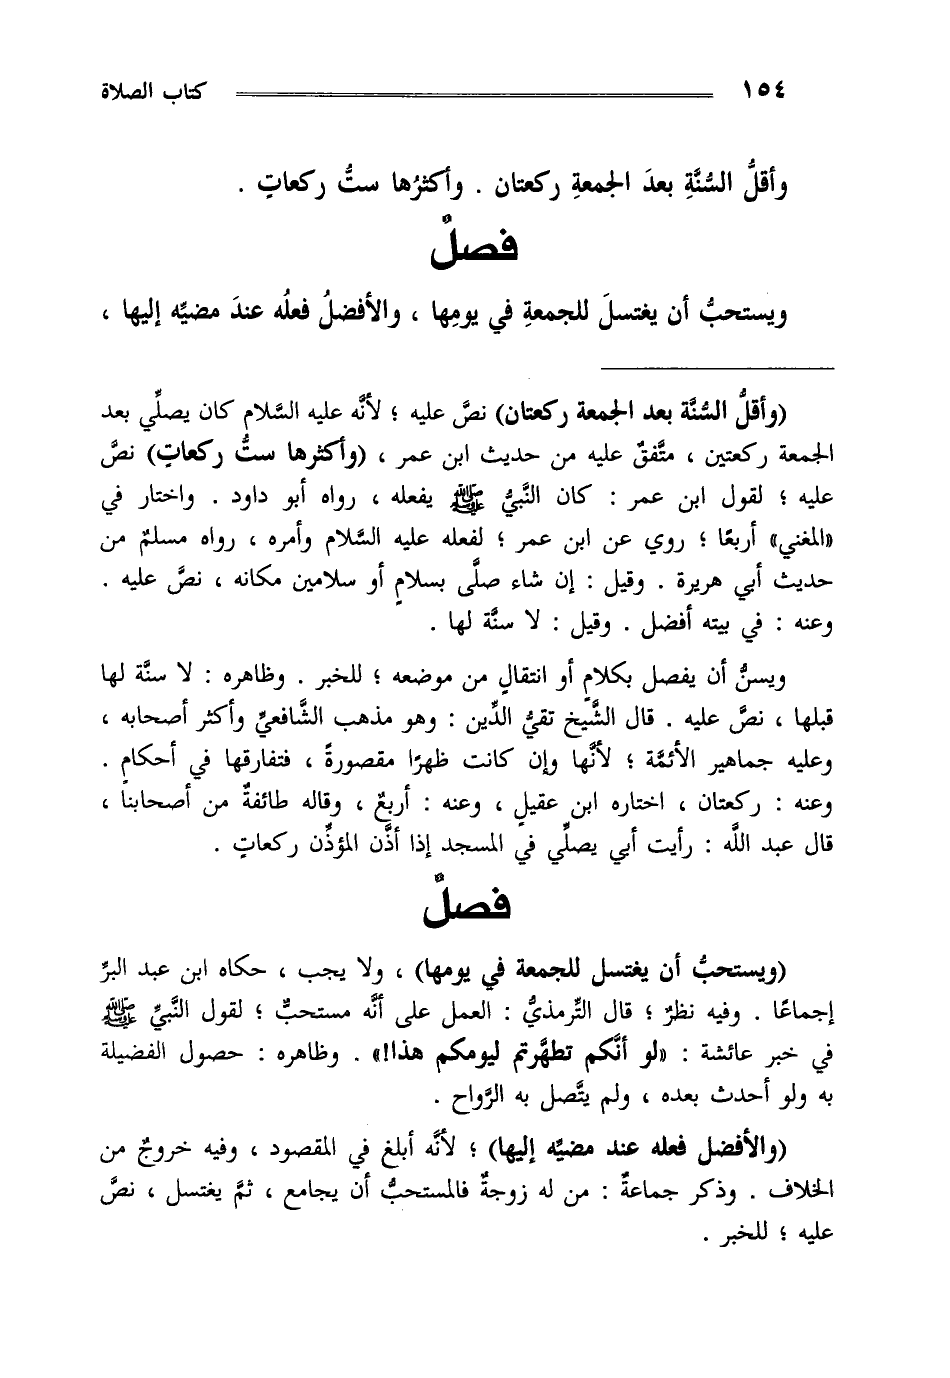 ١٥٤ كتاب الصلاة
وأقلُّ السُّنَّةِ بعدَ الجمعةِ ركعتان . وأكثرُها ستُّ ركعاتٍ .
فصلٌ
ويستحبُّ أن يغتسلَ للجمعةِ في يومِها ، والأفضلُ فعلُه عندَ مضيِّه إليها ،
(وأقلُّ السُّنَّة بعد الجمعة ركعتان) نصَّ عليه ؛ لأنَّه عليه السَّلام كان يصلِّي بعد
الجمعة ركعتين ، متَّفقٌ عليه من حديث ابن عمر ، (وأكثرها ستُّ ركعاتٍ) نصَّ
عليه ؛ لقول ابن عمر : كان النَّبيُّ ﷺ يفعله ، رواه أبو داود . واختار في
«المغني» أربعًا ؛ روي عن ابن عمر ؛ لفعله عليه السَّلام وأمره ، رواه مسلمٌ من
حديث أبي هريرة . وقيل : إن شاء صلَّى بسلامٍ أو سلامين مكانه ، نصَّ عليه .
وعنه : في بيته أفضل . وقيل : لا سنَّة لها .
ويسنُّ أن يفصل بكلامٍ أو انتقالٍ من موضعه ؛ للخبر . وظاهره : لا سنَّة لها
قبلها ، نصَّ عليه . قال الشَّيخ تقيُّ الدِّين : وهو مذهب الشَّافعيِّ وأكثر أصحابه ،
وعليه جماهير الأئمَّة ؛ لأنَّها وإن كانت ظهرًا مقصورةً ، فتفارقها في أحكامٍ .
وعنه : ركعتان ، اختاره ابن عقيلٍ ، وعنه : أربعٌ ، وقاله طائفةٌ من أصحابنا ،
قال عبد اللَّه : رأيت أبي يصلِّي في المسجد إذا أذَّن المؤذِّن ركعاتٍ .
فصلٌ
(ويستحبُّ أن يغتسل للجمعة في يومها) ، ولا يجب ، حكاه ابن عبد البرِّ
إجماعًا . وفيه نظرٌ ؛ قال التِّرمذيُّ : العمل على أنَّه مستحبٌّ ؛ لقول النَّبيِّ ﷺ
في خبر عائشة : «لو أنَّكم تطهَّرتم ليومكم هذا!» . وظاهره : حصول الفضيلة
به ولو أحدث بعده ، ولم يتَّصل به الرَّواح .
(والأفضل فعله عند مضيِّه إليها) ؛ لأنَّه أبلغ في المقصود ، وفيه خروجٌ من
الخلاف . وذكر جماعةٌ : من له زوجةٌ فالمستحبُّ أن يجامع ، ثمَّ يغتسل ، نصَّ
عليه ؛ للخبر .